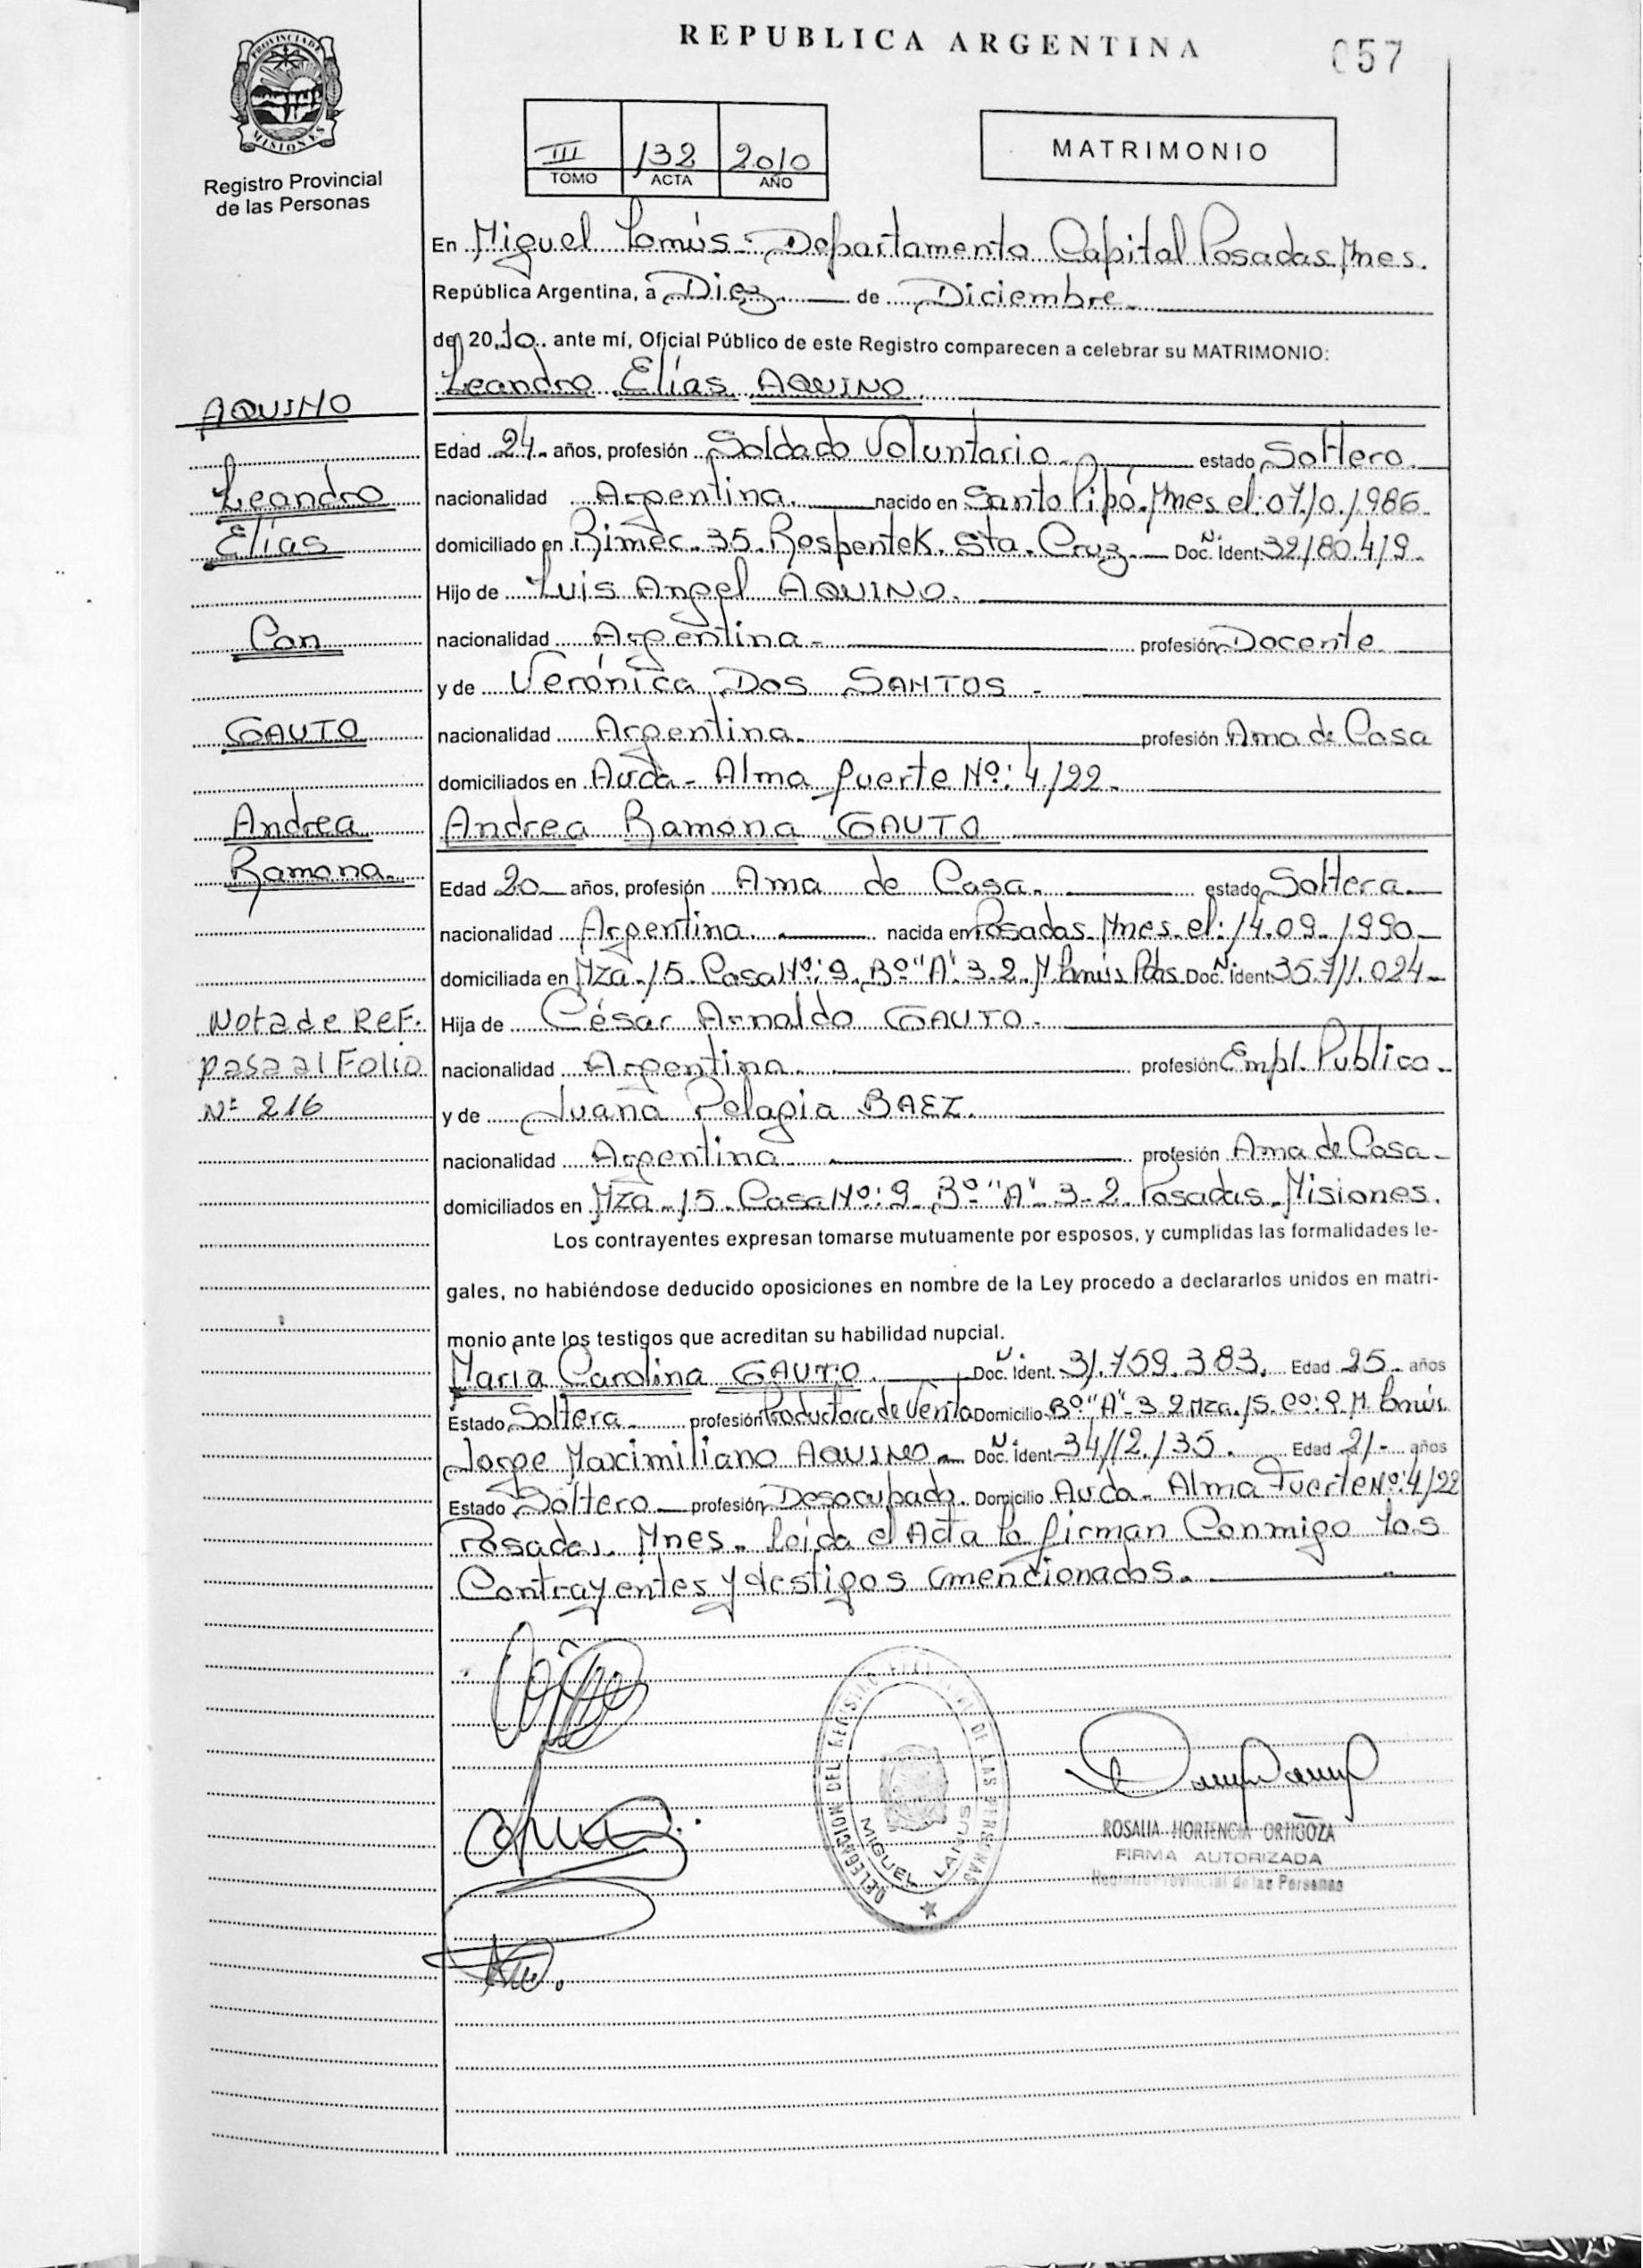 REPUBLICA ARGENTINA
057
PROVINCIA DE
MISIONES
Registro Provincial
de las Personas
III 132 2010
TOMO ACTA AÑO
MATRIMONIO
En Miguel Lanús - Departamento Capital Posadas Mnes.
República Argentina, a Diez de Diciembre
de 2010. ante mí, Oficial Público de este Registro comparecen a celebrar su MATRIMONIO:
Leandro Elías AQUINO
AQUINO
Edad 24 años, profesión Soldado Voluntario estado Soltero
Leandro
nacionalidad Argentina nacido en Santo Pipó. Mnes el: 07/01/1986
Elías
domiciliado en Rimec. 35. Rospentek. Sta. Cruz. Doc. Nº Ident. 32180.419
Hijo de Luis Angel AQUINO.
Con
nacionalidad Argentina profesión Docente
y de Verónica Dos SANTOS
GAUTO
nacionalidad Argentina profesión Ama de Casa
domiciliados en Avda - Alma fuerte Nº: 4122
Andrea
Andrea Ramona GAUTO
Ramona
Edad 20 años, profesión Ama de Casa estado Soltera
nacionalidad Argentina nacida en Posadas Mnes. el: 14.09.1990
domiciliada en Mza - 15. Casa Nº: 9. Bº "A" 3.2. M. Lanús Pdas Doc. Nº Ident. 35.711.024
Nota de REF.
Hija de César Arnaldo GAUTO
pasa al Folio
nacionalidad Argentina profesión Empl. Publico
Nº 216
y de Juana Pelagia BAEZ.
nacionalidad Argentina profesión Ama de Casa
domiciliados en Mza - 15. Casa Nº: 9 Bº "A" 3-2 Posadas. Misiones.
Los contrayentes expresan tomarse mutuamente por esposos, y cumplidas las formalidades le-
gales, no habiéndose deducido oposiciones en nombre de la Ley procedo a declararlos unidos en matri-
monio ante los testigos que acreditan su habilidad nupcial.
Maria Carolina GAUTO Doc. Nº Ident. 31.759.383. Edad 25 años
Estado Soltera profesión Productora de Venta Domicilio Bº "A" 3 2 Mza. 15. Cº: 9 M. Lanús
Jorge Maximiliano AQUINO Doc. Nº Ident. 34112.135. Edad 21 años
Estado Soltero profesión Desocupado. Domicilio Avda - Alma Fuerte Nº: 4122
Posadas. Mnes. leída el Acta la firman Conmigo los
Contrayentes y testigos mencionados.
DELEGACION DEL REGISTRO PROVINCIAL DE LAS PERSONAS
MIGUEL LANUS
ROSALIA HORTENCIA ORTIGOZA
FIRMA AUTORIZADA
Registro Provincial de las Personas